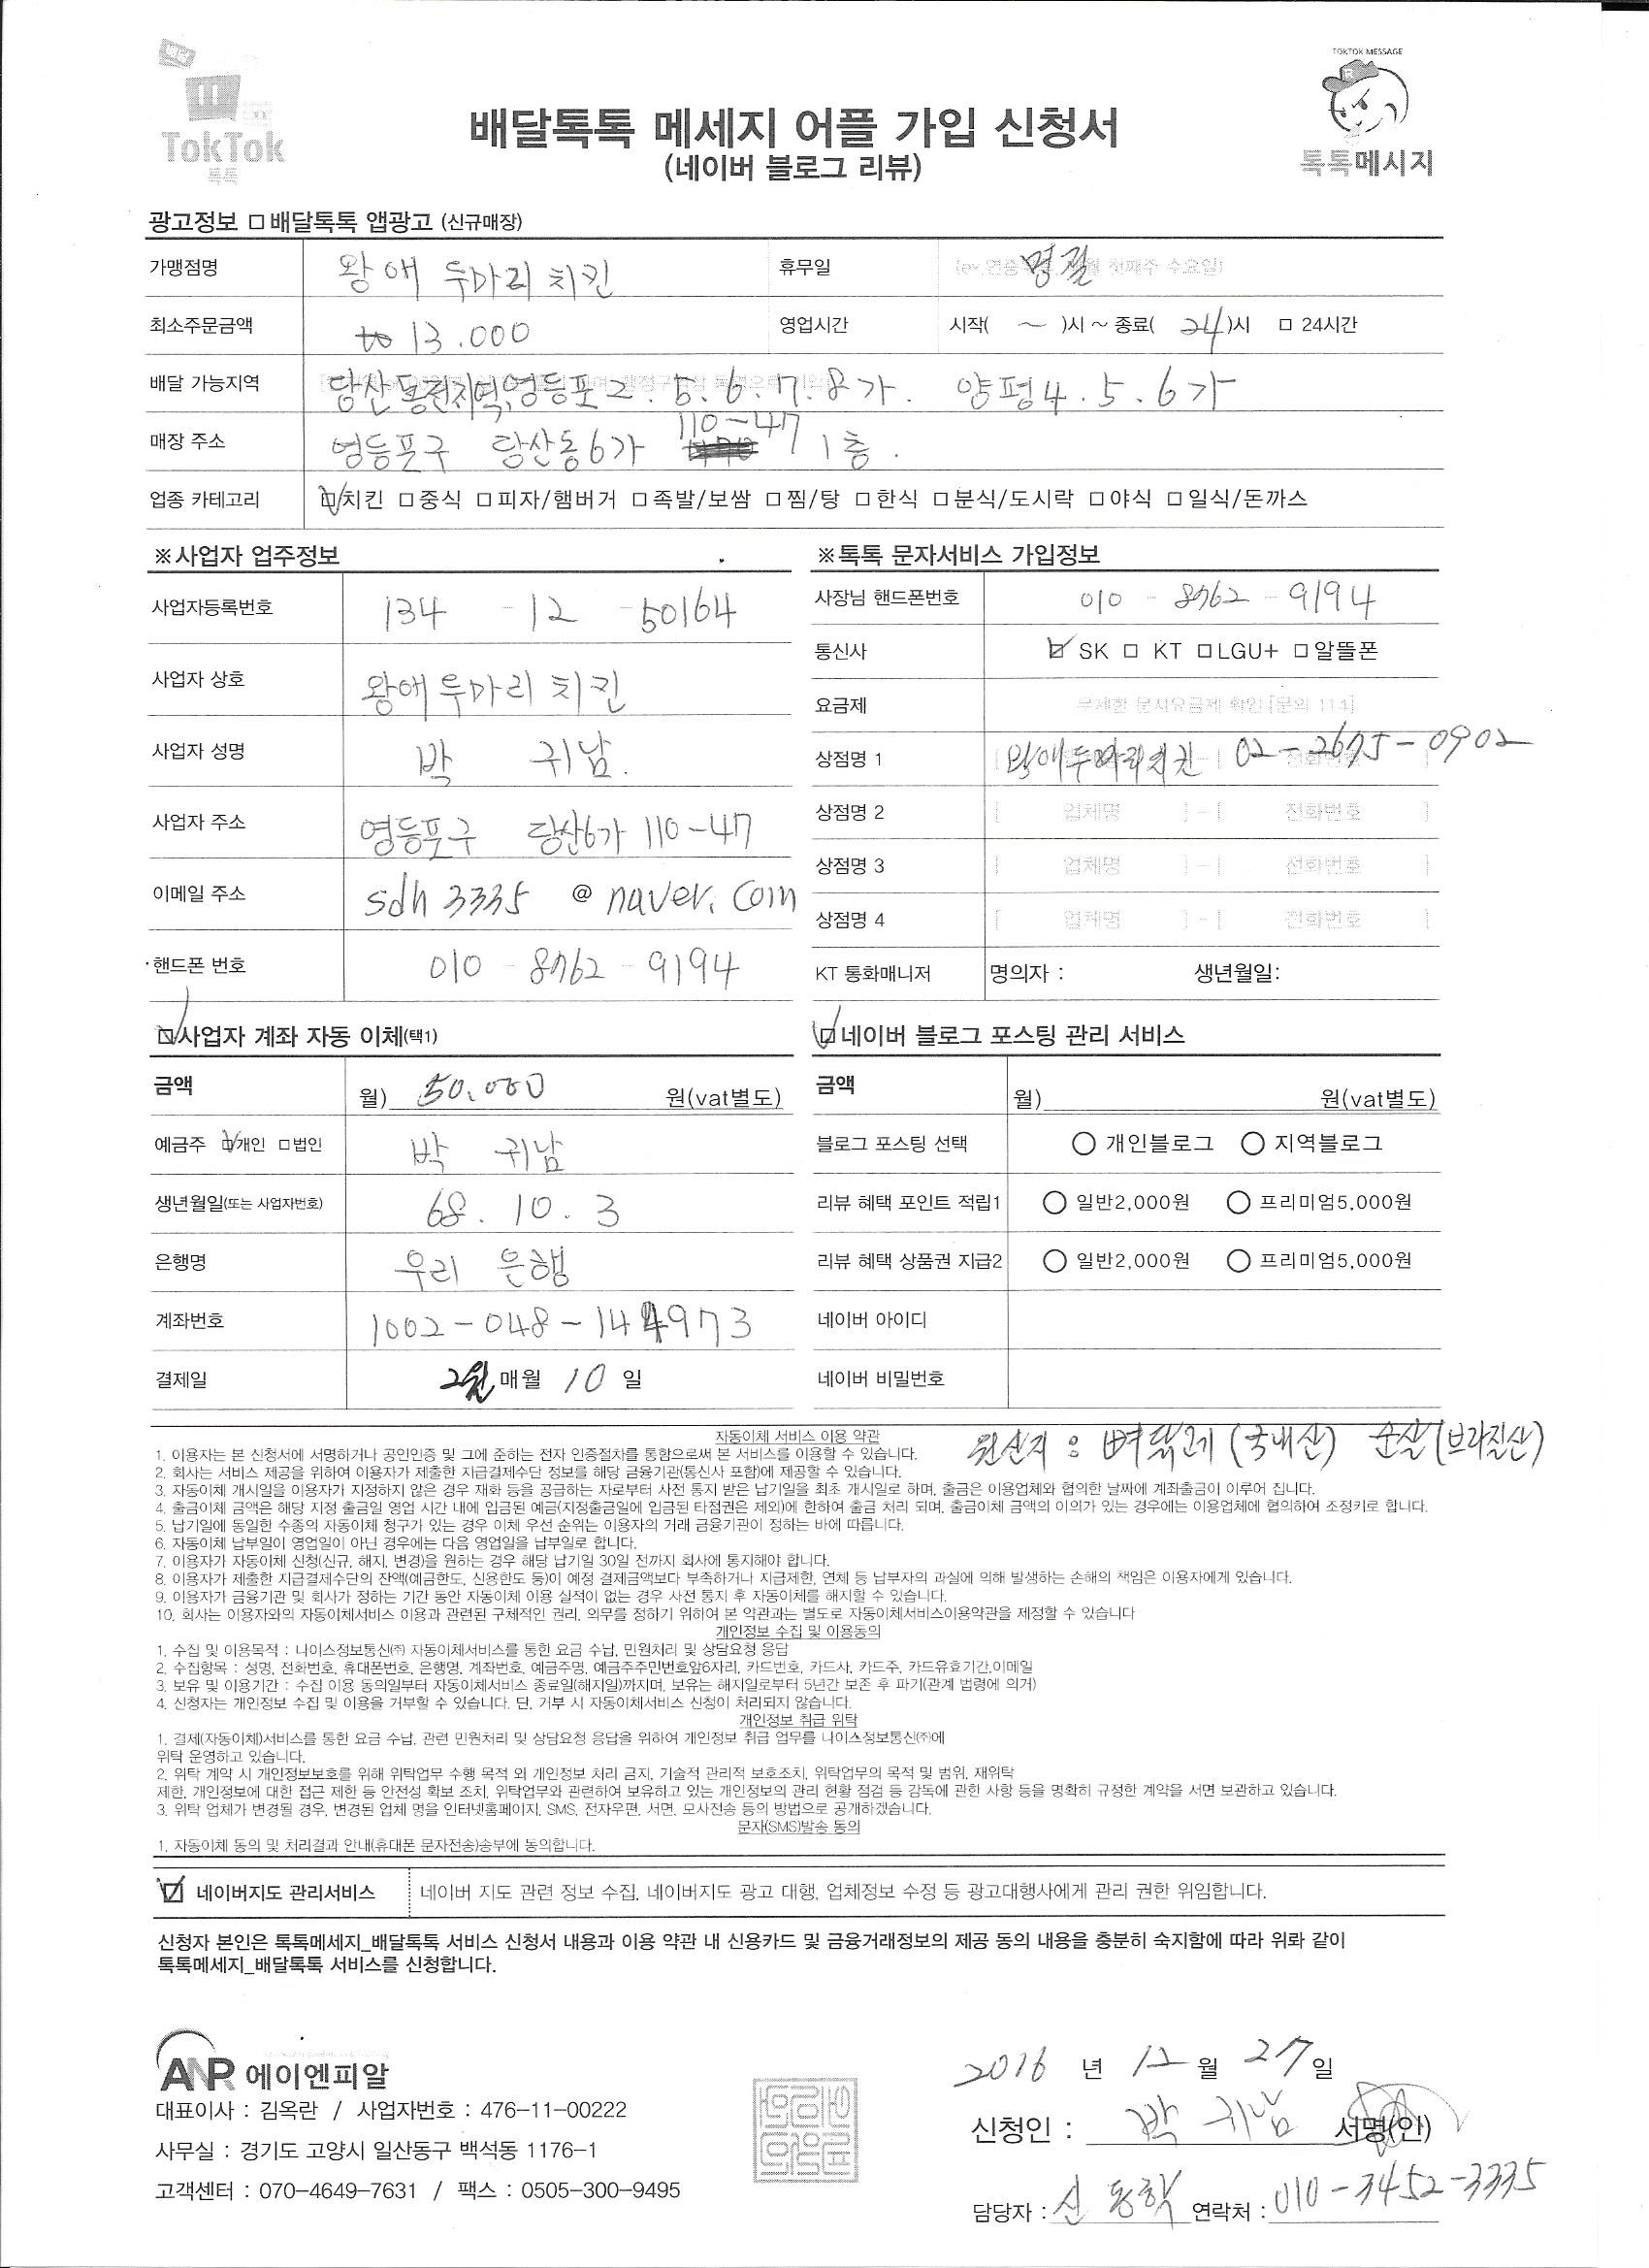 TokTok
톡톡
TOKTOK MESSAGE
톡톡메시지
배달톡톡 메세지 어플 가입 신청서
(네이버 블로그 리뷰)
광고정보 □ 배달톡톡 앱광고 (신규매장)
가맹점명 왕애 두마리 치킨 휴무일 명절
최소주문금액 13.000 영업시간 시작( ~ )시 ~ 종료( 24 )시 □ 24시간
배달 가능지역 당산동전지역, 영등포 2. 5. 6. 7. 8가. 양평 4. 5. 6가
매장 주소 영등포구 당산동6가 110-47 1층.
업종 카테고리 ☑치킨 □중식 □피자/햄버거 □족발/보쌈 □찜/탕 □한식 □분식/도시락 □야식 □일식/돈까스
※사업자 업주정보
사업자등록번호 134 - 12 - 50164
사업자 상호 왕애두마리 치킨
사업자 성명 박 귀남.
사업자 주소 영등포구 당산6가 110-47
이메일 주소 sdh 3335 @ naver. com
핸드폰 번호 010 - 8762 - 9194
※톡톡 문자서비스 가입정보
사장님 핸드폰번호 010 - 8762 - 9194
통신사 ☑ SK □ KT □LGU+ □알뜰폰
요금제 무제한 문자요금제 확인 [문의 114]
상점명 1 왕애두마리치킨 02-2675-0902
상점명 2 [ 업체명 ] - [ 전화번호 ]
상점명 3 [ 업체명 ] - [ 전화번호 ]
상점명 4 [ 업체명 ] - [ 전화번호 ]
KT 통화매니저 명의자 : 생년월일:
☑사업자 계좌 자동 이체(택1)
금액 월) 50.000 원(vat별도)
예금주 ☑개인 □법인 박 귀남
생년월일(또는 사업자번호) 68. 10. 3
은행명 우리 은행
계좌번호 1002-048-144973
결제일 2월 매월 10 일
☑네이버 블로그 포스팅 관리 서비스
금액 월) 원(vat별도)
블로그 포스팅 선택 ○ 개인블로그 ○ 지역블로그
리뷰 혜택 포인트 적립1 ○ 일반2,000원 ○ 프리미엄5,000원
리뷰 혜택 상품권 지급2 ○ 일반2,000원 ○ 프리미엄5,000원
네이버 아이디
네이버 비밀번호
자동이체 서비스 이용 약관
원산지 : 뼈닭고기 (국내산) 순살(브라질산)
1. 이용자는 본 신청서에 서명하거나 공인인증 및 그에 준하는 전자 인증절차를 통함으로써 본 서비스를 이용할 수 있습니다.
2. 회사는 서비스 제공을 위하여 이용자가 제출한 지급결제수단 정보를 해당 금융기관(통신사 포함)에 제공할 수 있습니다.
3. 자동이체 개시일을 이용자가 지정하지 않은 경우 재화 등을 공급하는 자로부터 사전 통지 받은 납기일을 최초 개시일로 하며, 출금은 이용업체와 협의한 날짜에 계좌출금이 이루어 집니다.
4. 출금이체 금액은 해당 지정 출금일 영업 시간 내에 입금된 예금(지정출금일에 입금된 타점권은 제외)에 한하여 출금 처리 되며, 출금이체 금액의 이의가 있는 경우에는 이용업체에 협의하여 조정키로 합니다.
5. 납기일에 동일한 수종의 자동이체 청구가 있는 경우 이체 우선 순위는 이용자의 거래 금융기관이 정하는 바에 따릅니다.
6. 자동이체 납부일이 영업일이 아닌 경우에는 다음 영업일을 납부일로 합니다.
7. 이용자가 자동이체 신청(신규, 해지, 변경)을 원하는 경우 해당 납기일 30일 전까지 회사에 통지해야 합니다.
8. 이용자가 제출한 지급결제수단의 잔액(예금한도, 신용한도 등)이 예정 결제금액보다 부족하거나 지급제한, 연체 등 납부자의 과실에 의해 발생하는 손해의 책임은 이용자에게 있습니다.
9. 이용자가 금융기관 및 회사가 정하는 기간 동안 자동이체 이용 실적이 없는 경우 사전 통지 후 자동이체를 해지할 수 있습니다.
10. 회사는 이용자와의 자동이체서비스 이용과 관련된 구체적인 권리, 의무를 정하기 위하여 본 약관과는 별도로 자동이체서비스이용약관을 제정할 수 있습니다
개인정보 수집 및 이용동의
1. 수집 및 이용목적 : 나이스정보통신㈜ 자동이체서비스를 통한 요금 수납, 민원처리 및 상담요청 응답
2. 수집항목 : 성명, 전화번호, 휴대폰번호, 은행명, 계좌번호, 예금주명, 예금주주민번호앞6자리, 카드번호, 카드사, 카드주, 카드유효기간,이메일
3. 보유 및 이용기간 : 수집 이용 동의일부터 자동이체서비스 종료일(해지일)까지며, 보유는 해지일로부터 5년간 보존 후 파기(관계 법령에 의거)
4. 신청자는 개인정보 수집 및 이용을 거부할 수 있습니다. 단, 거부 시 자동이체서비스 신청이 처리되지 않습니다.
개인정보 취급 위탁
1. 결제(자동이체)서비스를 통한 요금 수납, 관련 민원처리 및 상담요청 응답을 위하여 개인정보 취급 업무를 나이스정보통신㈜에
위탁 운영하고 있습니다.
2. 위탁 계약 시 개인정보보호를 위해 위탁업무 수행 목적 외 개인정보 처리 금지, 기술적 관리적 보호조치, 위탁업무의 목적 및 범위, 재위탁
제한, 개인정보에 대한 접근 제한 등 안전성 확보 조치, 위탁업무와 관련하여 보유하고 있는 개인정보의 관리 현황 점검 등 감독에 관한 사항 등을 명확히 규정한 계약을 서면 보관하고 있습니다.
3. 위탁 업체가 변경될 경우, 변경된 업체 명을 인터넷홈페이지, SMS, 전자우편, 서면, 모사전송 등의 방법으로 공개하겠습니다.
문자(SMS)발송 동의
1. 자동이체 동의 및 처리결과 안내(휴대폰 문자전송)송부에 동의합니다.
☑ 네이버지도 관리서비스 네이버 지도 관련 정보 수집, 네이버지도 광고 대행, 업체정보 수정 등 광고대행사에게 관리 권한 위임합니다.
신청자 본인은 톡톡메세지_배달톡톡 서비스 신청서 내용과 이용 약관 내 신용카드 및 금융거래정보의 제공 동의 내용을 충분히 숙지함에 따라 위와 같이
톡톡메세지_배달톡톡 서비스를 신청합니다.
ANR 에이엔피알
대표이사 : 김옥란 / 사업자번호 : 476-11-00222
사무실 : 경기도 고양시 일산동구 백석동 1176-1
고객센터 : 070-4649-7631 / 팩스 : 0505-300-9495
2016 년 12 월 27 일
신청인 : 박 귀남 서명(인)
담당자 : 신 동학 연락처 : 010-3452-3335